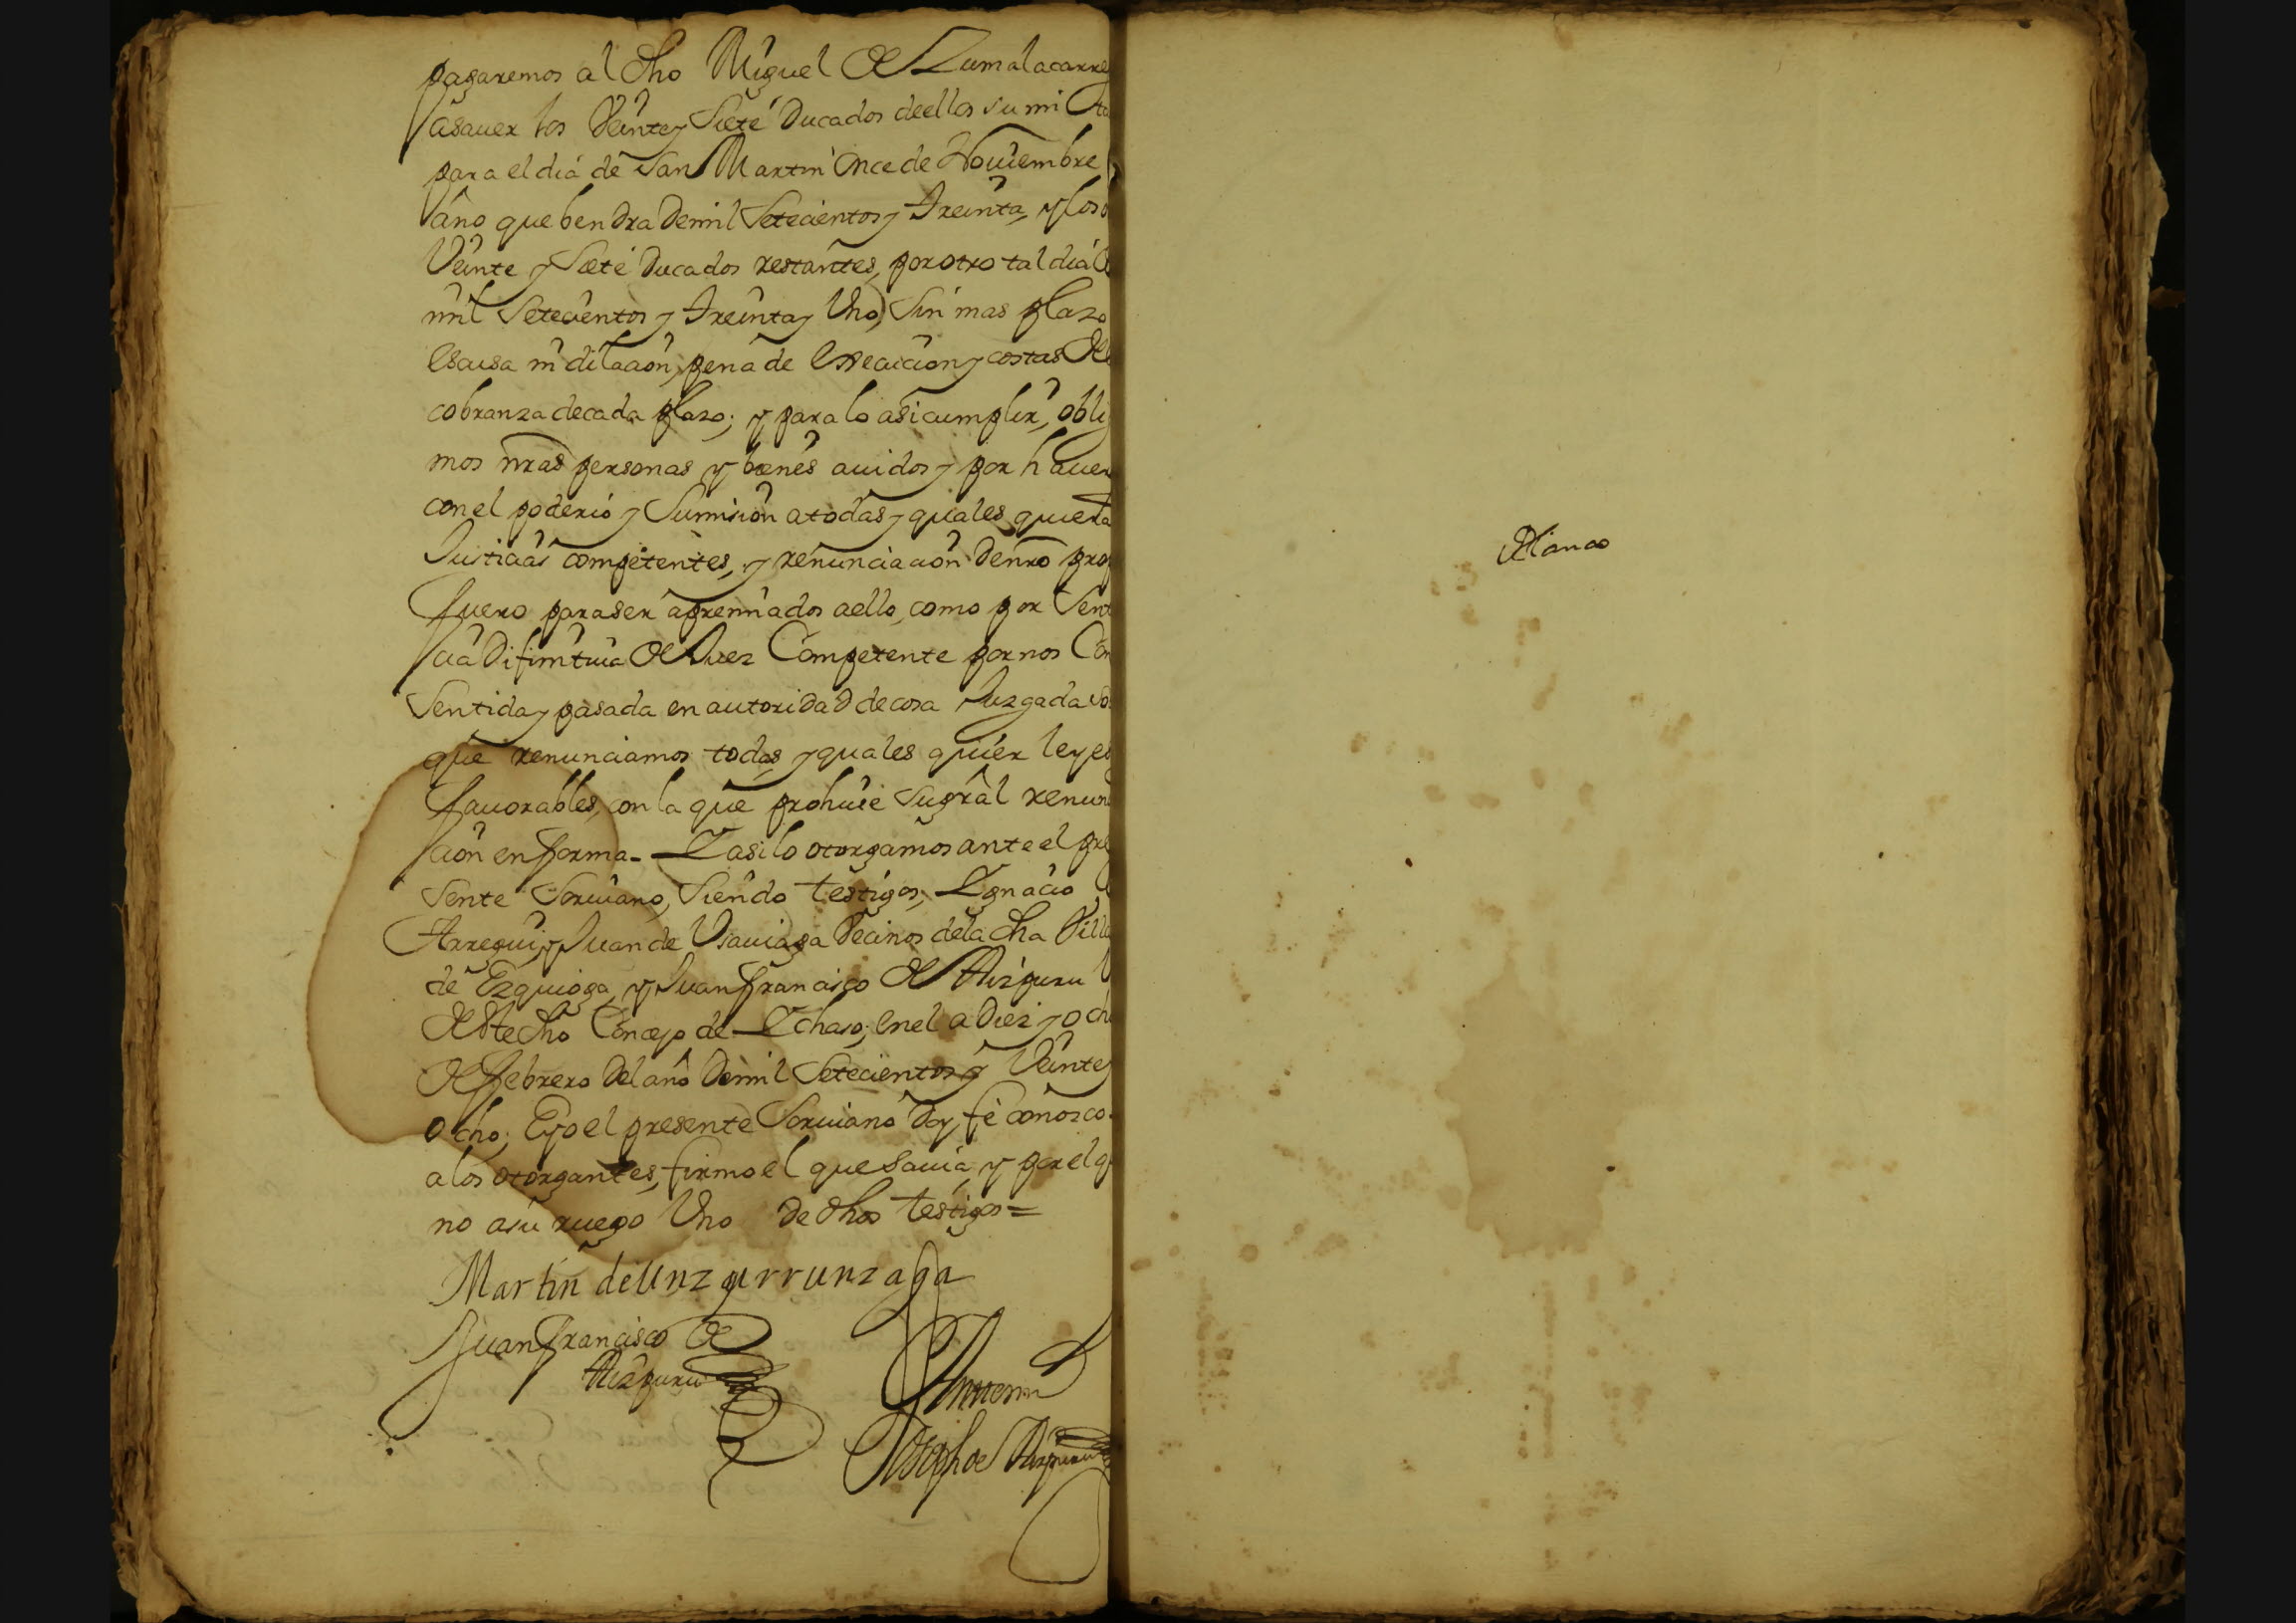 pagaremos al dho Miguel de Zumalacarre
asauer los Veinte y Siete Ducados deellos su mi
para el dia de San Martin Once de Nouiembre
año que bendra de mil Setecientos y Treinta, y los
Veinte y Siete Ducados restantes, por otro tal dia
mil Setecientos y Treinta y Uno, Sin mas plazo
escusa ni dilacion, pena de execucion y costas de
cobranza de cada plazo; y para lo asi cumplir, obli
mos nras personas y bienes auidos y por hauer
con el poderio y Sumision a todas y quales quiera
Justicias competentes, y renunciacion de nro prop
fuero para ser apremiados a ello, como por Sent
cia Difinitiua de Juez Competente por nos Con
Sentida y pasada en autoridad de cosa Juzgada So
que renunciamos todas y quales quier leyes
fauorables, con la que prohiue Su gral renun
cion en forma - Y asi lo otorgamos ante el pre
sente Scriuano, Siendo testigos, Ygnacio
Arregui, y Juan de Vsauiaga Vecinos de la dha Villa
de Ezquioga, y Juan francisco de Aizpuru
deste dho Concejo de Ychaso; en el a Diez y och
de febrero del año de mil Setecientos y Veinte y
ocho; E yo el presente Scriuano doy fe conozco
a los otorgantes, firmo el que sauia, y por el q
no a su ruego Uno de dhos testigos =
Martin de Unzurrunzaga
Juan francisco de
Aizpuru
Ante mi
Joseph de Aizpuru
Blanco